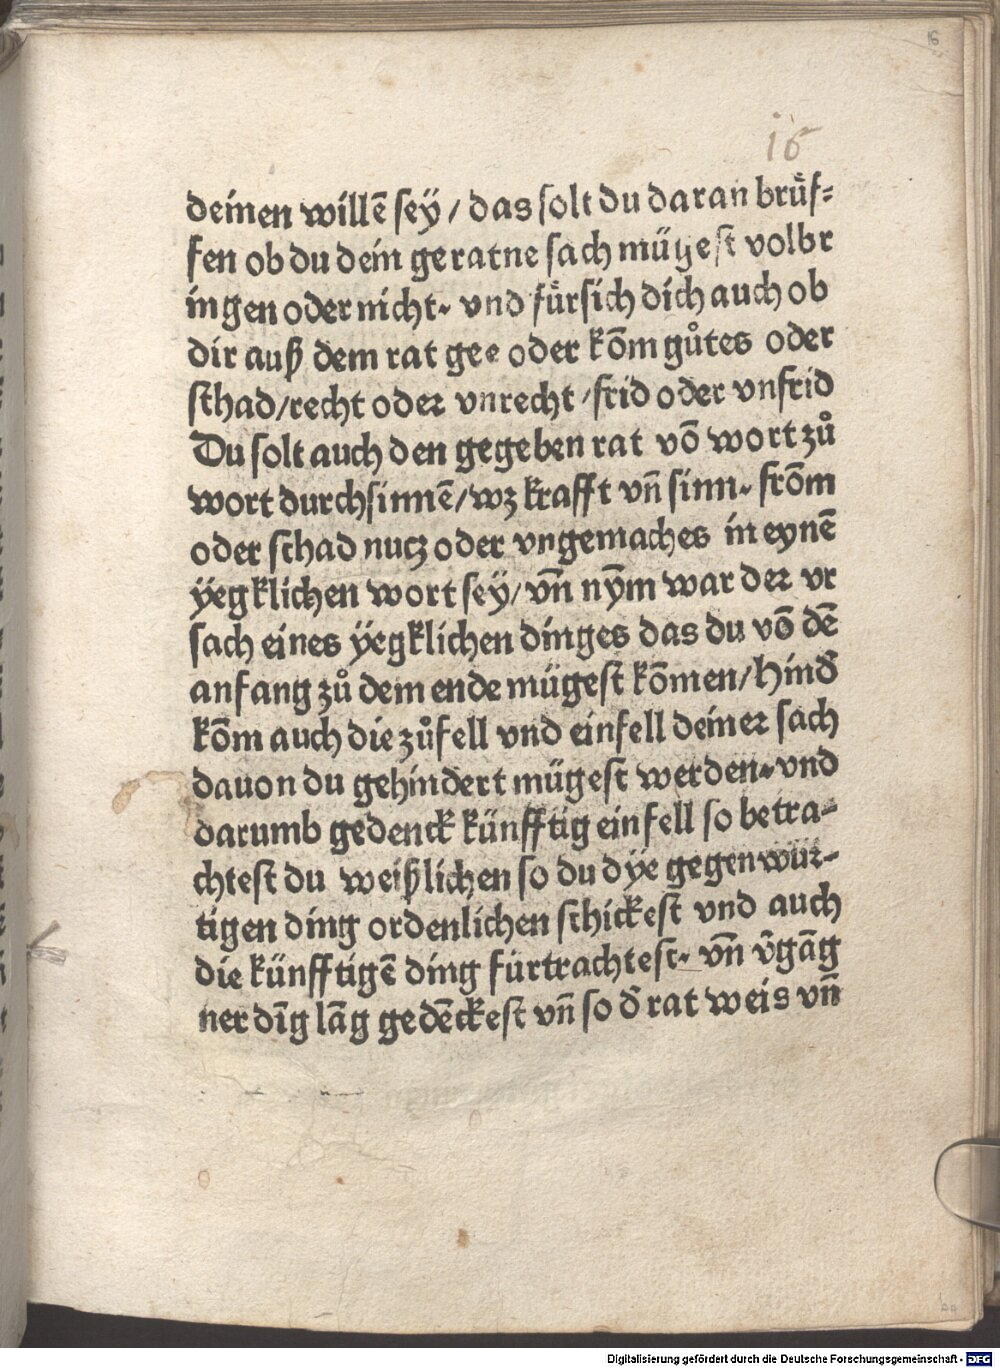 16
16
deinen willē sey / das solt du daran bruͤf⸗
fen ob du dein geratne sach mügest volbr
ingen oder nicht⸗ vnd fuͤrsich dich auch ob
dir auß dem rat gee oder kōm guͦtes oder
schad/recht oder vnrecht /frid oder vnfrid
Du solt auch den gegeben rat vō wort zuͦ
wort durchsinnē/wz krafft vn̄ sinn⸗ frōm
oder schad nutz oder vngemaches in eynē
ÿegklichen wort seÿ/ vn̄ nȳm war der vr
sach eines ÿegklichen dinges das du vō dē
anfang zuͦ dem ende mügest kōmen/Hind̄
kōm auch die zuͦfell vnd einfell deiner sach
dauon du gehindert mügest werden⸗vnd
darumb gedenck künfftig einfell so betra⸗
chtest du weißlichen so du dÿe gegenwür⸗
tigen ding ordenlichen schickest vnd auch
die künfftigē ding fürtrachtest⸗ vn̄ v̄gāg
ner dīg lāg gedēckest vn̄ so d̄ rat weis vn̄
Digitalisierung gefördert durch die Deutsche Forschungsgemeinschaft - DFG